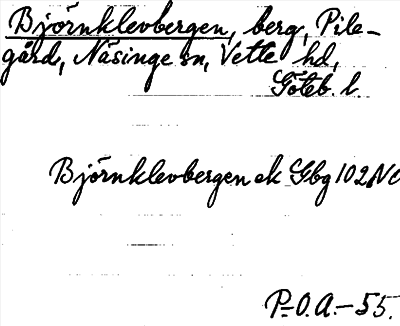 Björnklevbergen, berg, Pile-
gård, Näsinge sn, Vette hd,
Göteb. l.
Björnklevbergen ek Gbg 102 NO
P-O.A.-55.